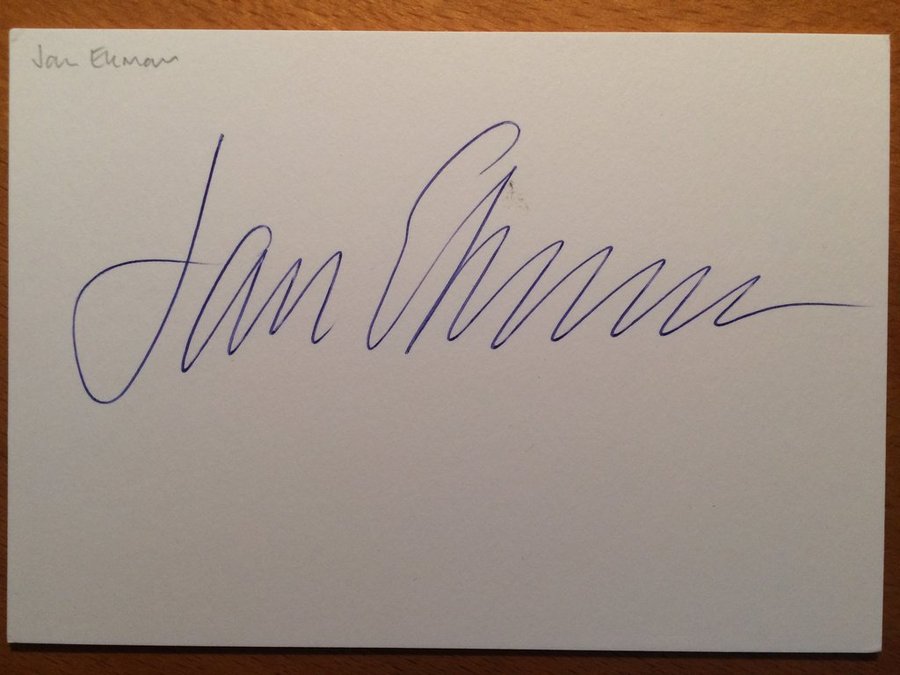 Jan Ekman
Jan Ekman